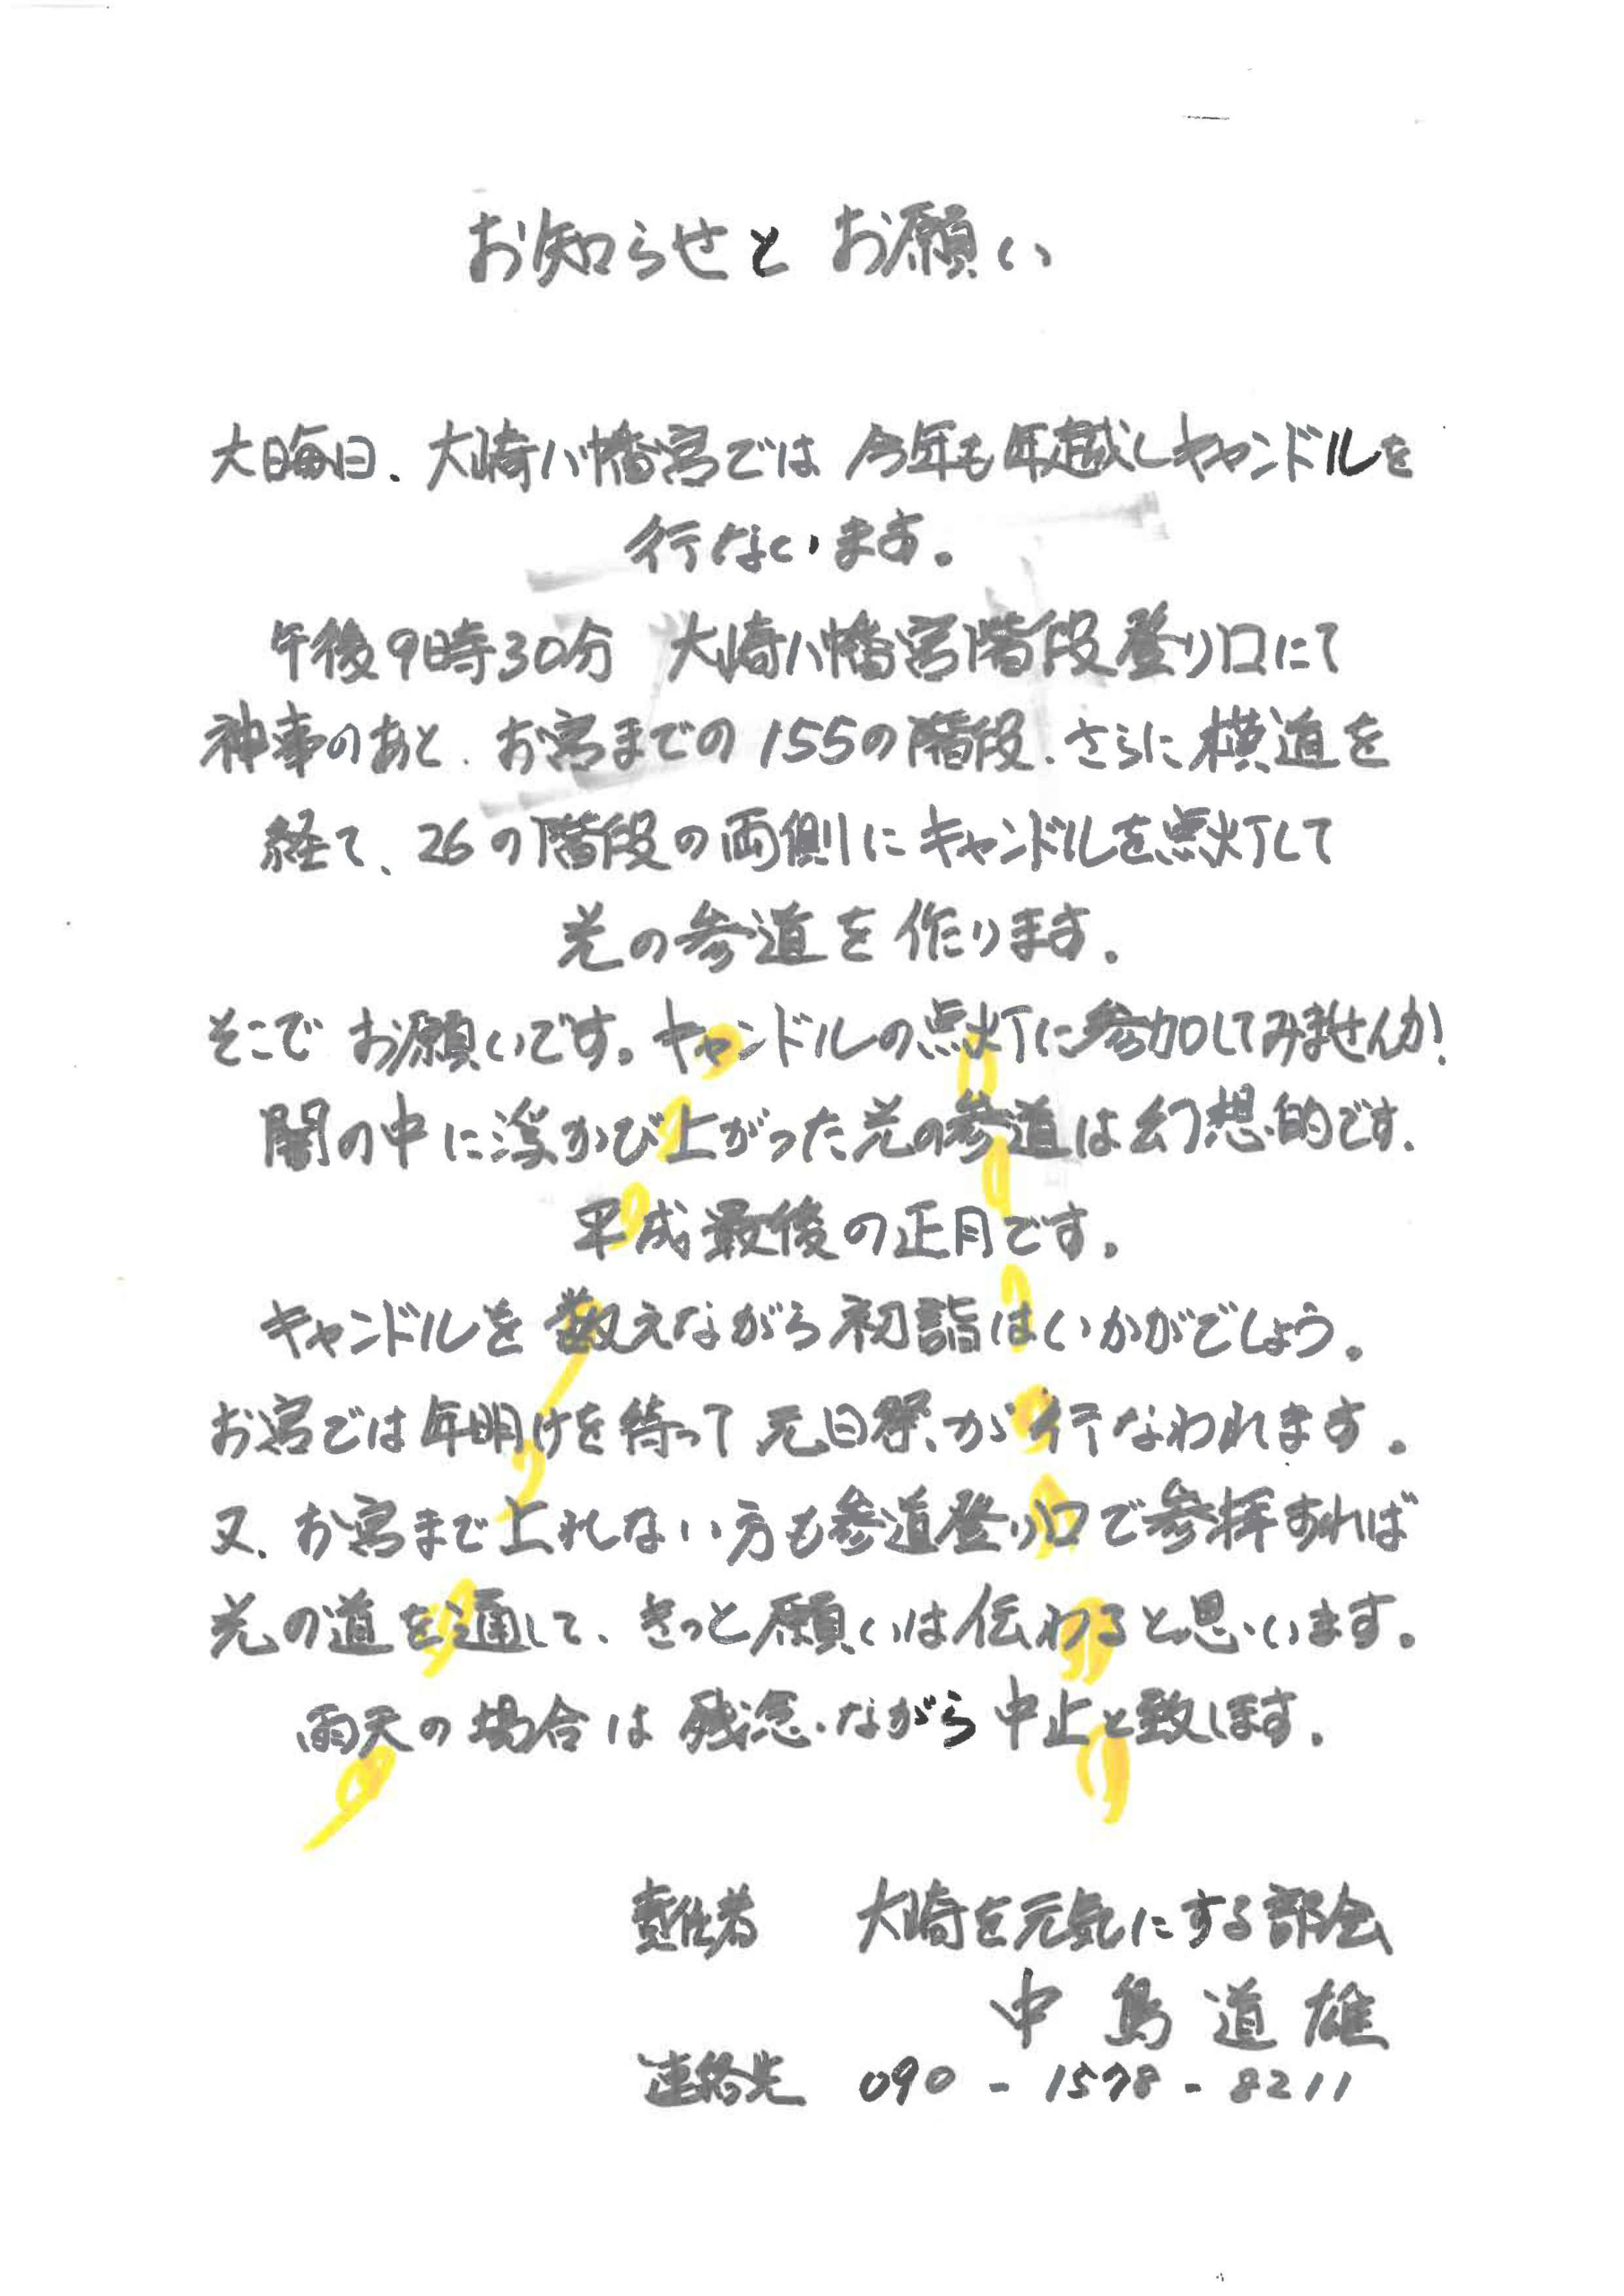 お知らせと お願い
大晦日、大崎八幡宮では 今年も年越しキャンドルを
行ないます。
午後9時30分 大崎八幡宮階段登り口にて
神事のあと、お宮までの 155の階段、さらに横道を
経て、26の階段の両側にキャンドルを点灯して
光の参道を作ります。
そこで お願いです。キャンドルの点灯に参加してみませんか!
闇の中に浮かび上がった光の参道は幻想的です。
平成最後の正月です。
キャンドルを数えながら初詣はいかがでしょう。
お宮では年明けを待って元日祭が行なわれます。
又、お宮まで上れない方も参道登り口で参拝すれば
光の道を通して、きっと願いは伝わると思います。
雨天の場合は残念ながら中止と致します。
責任者 大崎を元気にする部会
中島道雄
連絡先 090-1578-8211